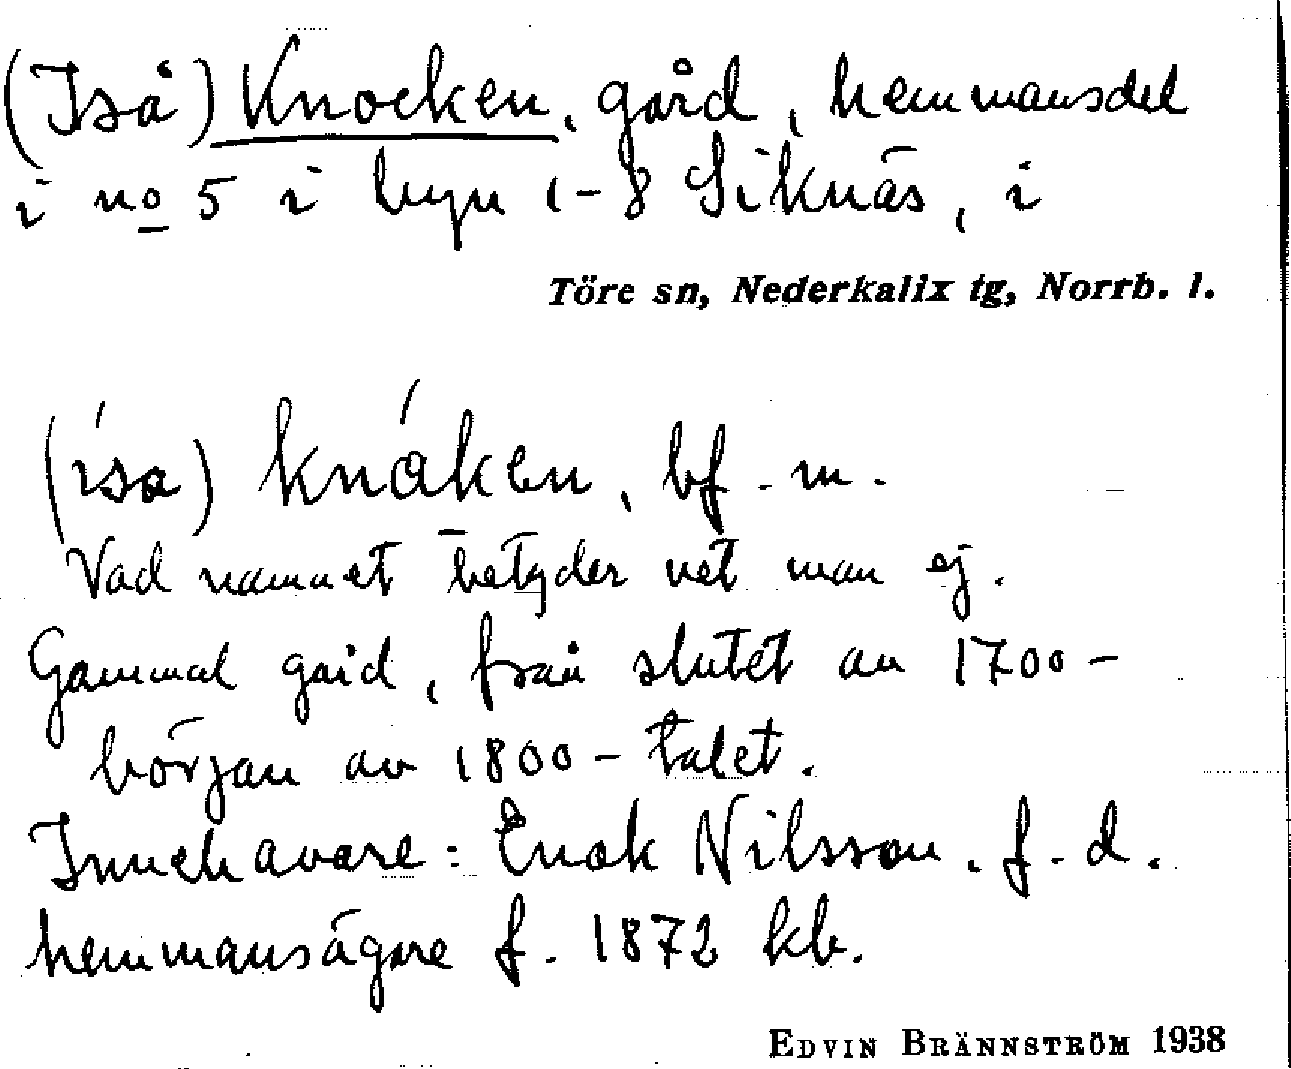 (Iså) Knocken, gård, hemmansdel
i no 5 i byn 1-8 Siknäs, i
Töre sn, Nederkalix tg, Norrb. l.
(i´sa) knå´ken, bf. m.
Vad namnet betyder vet man ej.
Gammal gård, från slutet av 1700-
början av 1800-talet.
Innehavare: Enok Nilsson. f. d.
hemmansägare f. 1872 kb.
EDVIN BRÄNNSTRÖM 1938